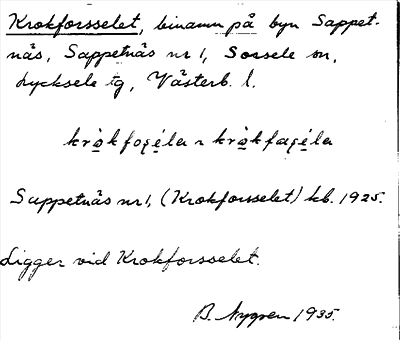 Krokforsselet, binamn på byn Sappet-
näs, Sappetnäs nr 1, Sorsele sn,
Lycksele tg, Västerb. l.
krò̱kfoʂé̱la ~ krò̱kfaʂé̱la
Sappetnäs nr 1, (Krokforsselet) kb. 1925.
Ligger vid Krokforsselet.
B. Nygren 1935.